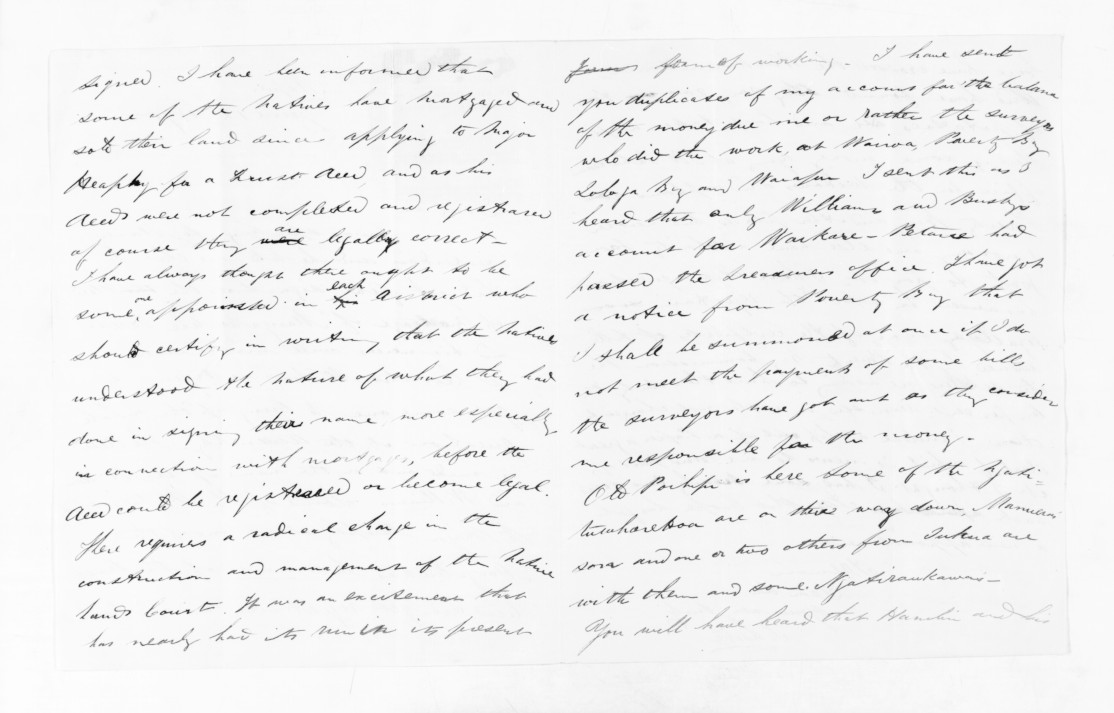 signed. I have been informed that
some of the Natives have mortgaged and
sold their land since applying to Major
Heaphy for a trust deed, and as his
deeds were not completed and registered
of course they were are legally correct -
I have always thought there ought to be
some one appointed in his each district who
should certify in writing that the Natives
understood the nature of what they had
done in signing their name more especially
in connection with mortgages, before the
deed could be registered or become legal.
There requires a radical change in the
construction and management of the Native
Lands Court. It was an excitement that
has nearly had its run in its present
form of working. I have sent
you duplicates of my account for the balance
of the money due me or rather the surveyors
who did the work, at Wairoa, Poverty Bay
Tolaga Bay and Waiapu. I sent this as I
heard that only Williams and Busbys
account for Waikare - Petane had
passed the Treasurers office. I have got
a notice from Poverty Bay that
I shall be summonsed at once if I do
not meet the payment of some bills
the surveyors have got out as they consider
me responsible for the money -
Old Poihipi is here some of the Ngati-
tuwharetoa are on their way down,
and one or two others from are
with them and some Ngatiraukawas -
You will have heard that and his